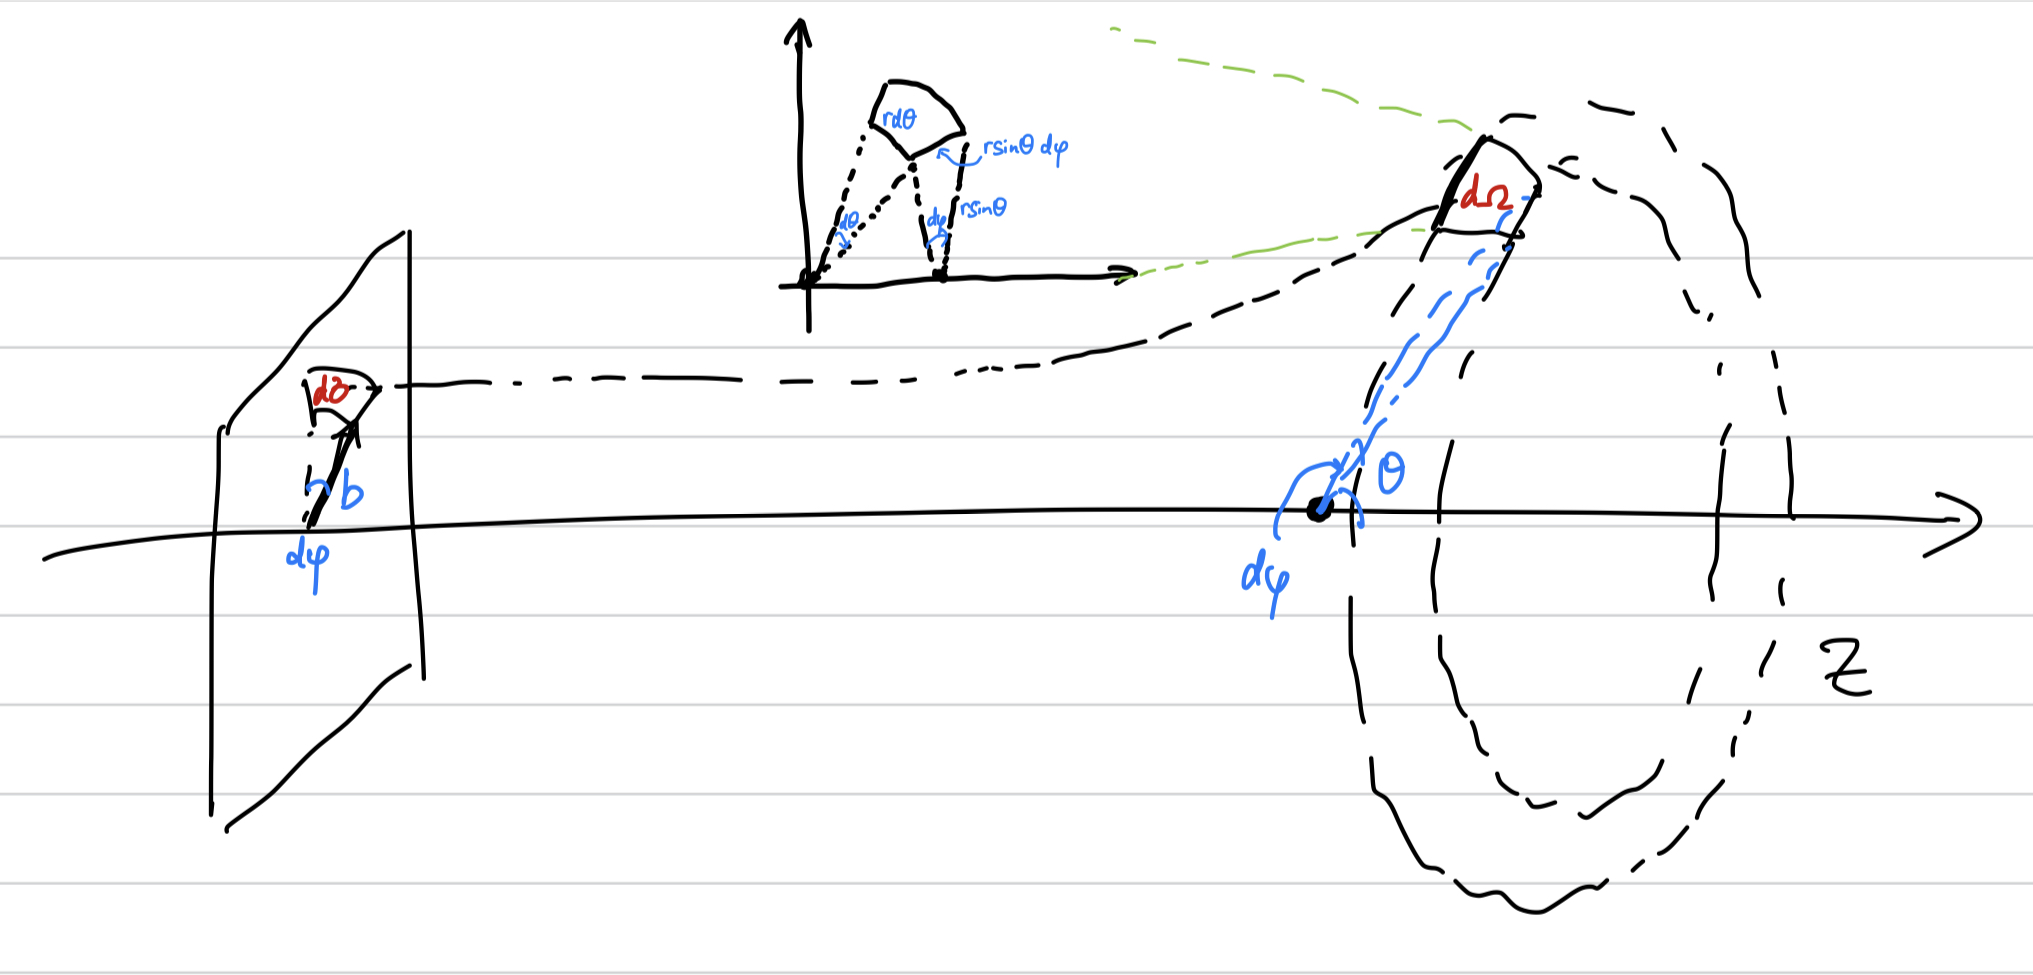 rdθ
rsinθ dφ
dθ
dφ
rsinθ
dΩ
dσ
b
θ
dφ
dφ
z